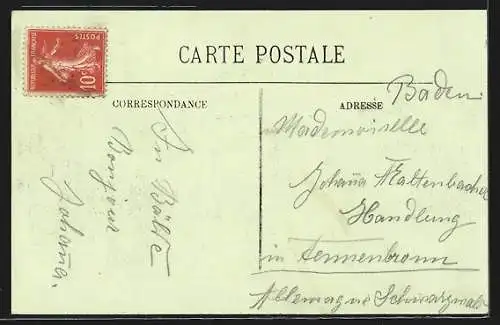 POSTES
REPUBLIQUE FRANÇAISE
10c
CARTE POSTALE
CORRESPONDANCE
ADRESSE
In Bälde
Bonjour
Johana.
Baden.
Mademoiselle
Johaña Kaltenbacher
Handlung
in Tennenbronn
Allemagne Schwarzwald